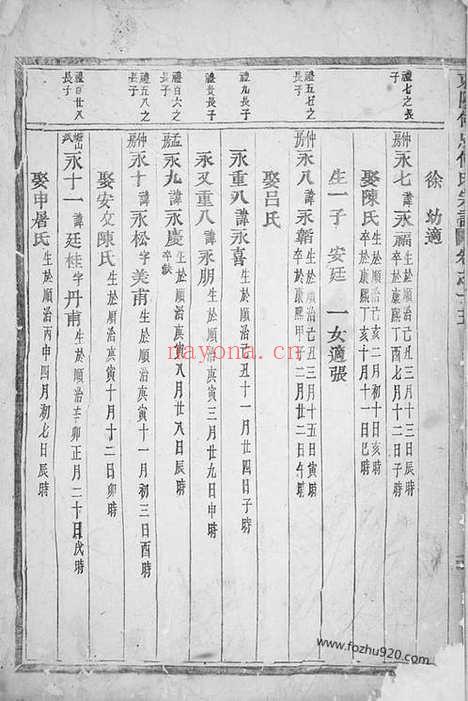 徐 幼適
禮七之長子
仲房 永七 諱永福 生於順治己丑三月十三日辰時 卒於康熙丁酉七月十二日子時
娶陳氏 生於順治己亥二月初十日亥時 卒於康熙丁亥十月十一日巳時
生一子 安廷 一女適張
禮五七之長子
仲房 永八 諱永韜 生於順治己丑三月十五日寅時 卒於康熙甲子二月廿二日午時
娶呂氏
禮九長子
永重八 諱永喜 生於順治己丑十一月廿四日子時
禮長子
永又重八 諱永朋 生於順治庚寅三月廿九日申時
禮百六之長子
孟房 永九 諱永慶 生於順治庚寅八月廿八日辰時 卒缺
禮五八之子
仲房 永十 諱永松 字美甫 生於順治庚寅十一月初三日酉時
娶安文陳氏 生於順治庚寅十月十二日卯時
禮百廿八長子
永十一 諱廷桂 字丹甫 生於順治辛卯正月二十日戌時
娶申屠氏 生於順治丙申四月初七日辰時
nayona.cn
www.fozhu920.com